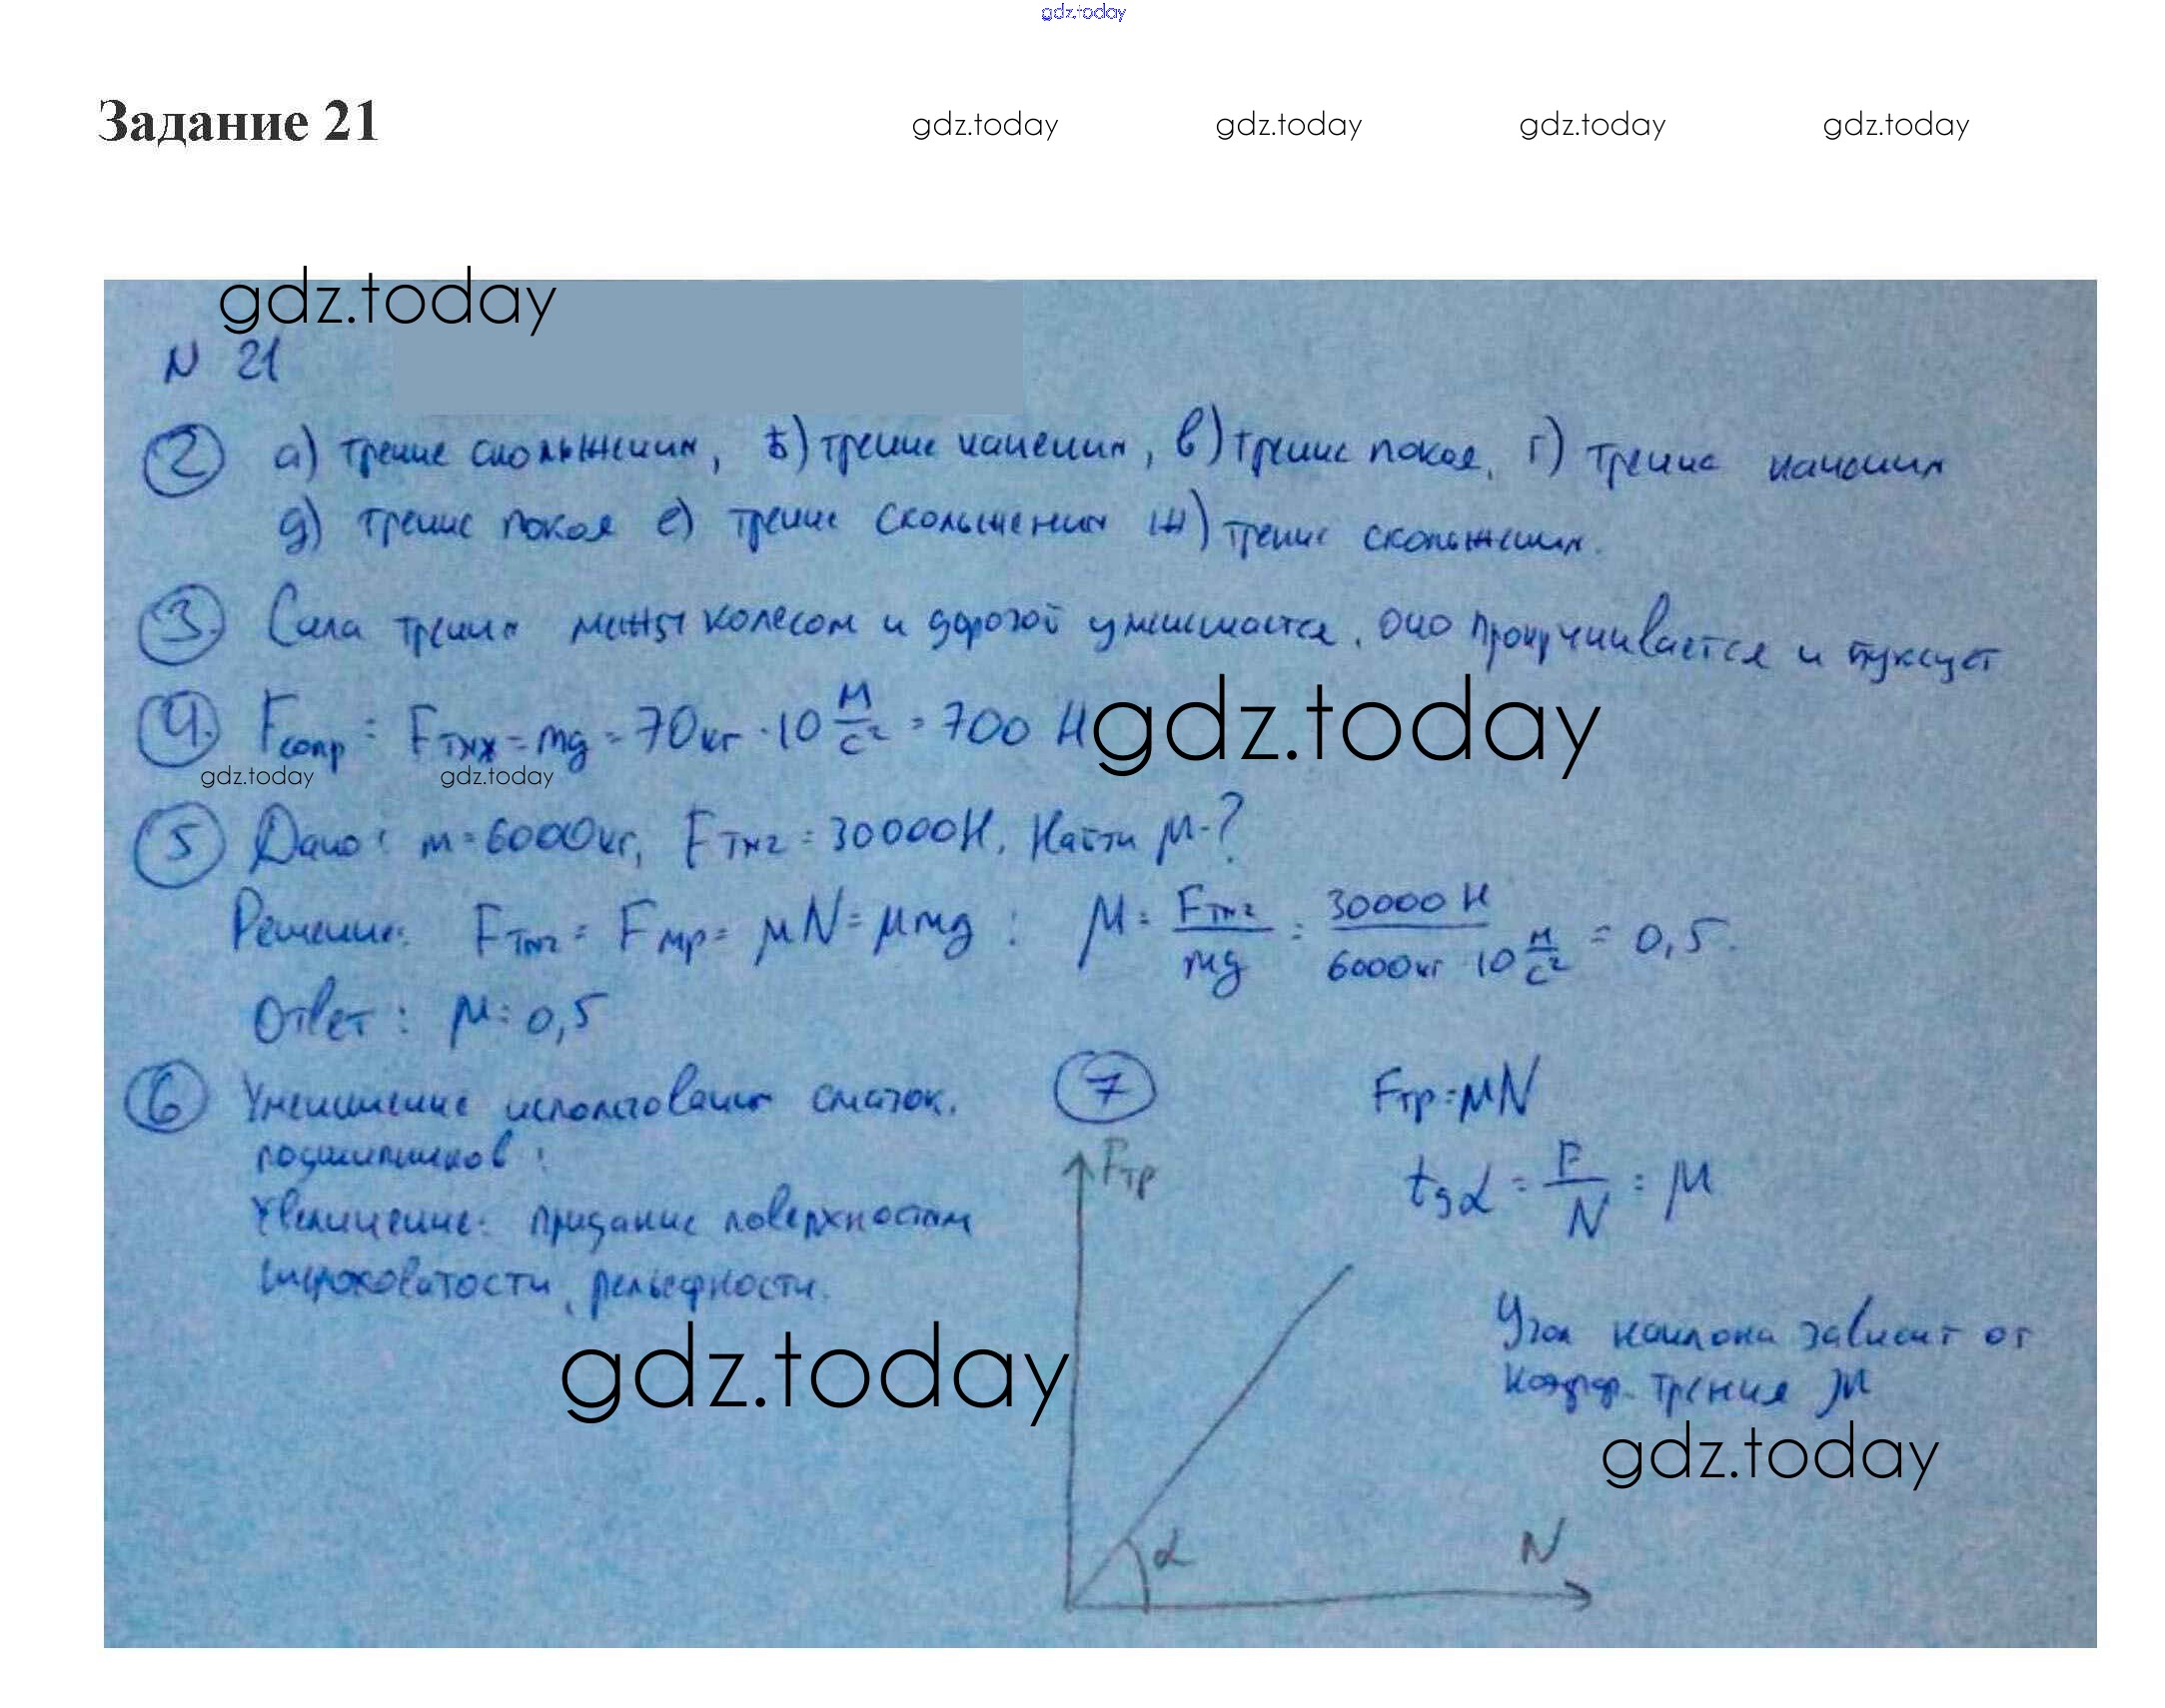 gdz.today
Задание 21
gdz.today gdz.today gdz.today gdz.today
gdz.today
N 21
2 а) трение скольжения, б) трение качения, в) трение покоя, г) трение качения
д) трение покоя е) трение скольжения ж) трение скольжения.
3. Сила трения между колесом и дорогой уменьшается. Оно прокручивается и буксует
4. Fсопр = Fтяж = mg = 70кг · 10 м/с² = 700 Н
gdz.today
gdz.today gdz.today
5 Дано: m = 6000кг, Fтяг = 30000Н. Найти μ-?
Решение: Fтяг = Fтр = μN = μmg : μ = Fтяг/mg = 30000 Н/6000кг 10 м/с² = 0,5.
Ответ: μ = 0,5
6 Уменьшение использования смазок.
подшипников:
Увеличение: придание поверхностям
шероховатости, рельефности.
gdz.today
7 Fтр = μN
Fтр
tgα = F/N = μ
Угол наклона зависит от
коэфф. трения μ
gdz.today
α
N